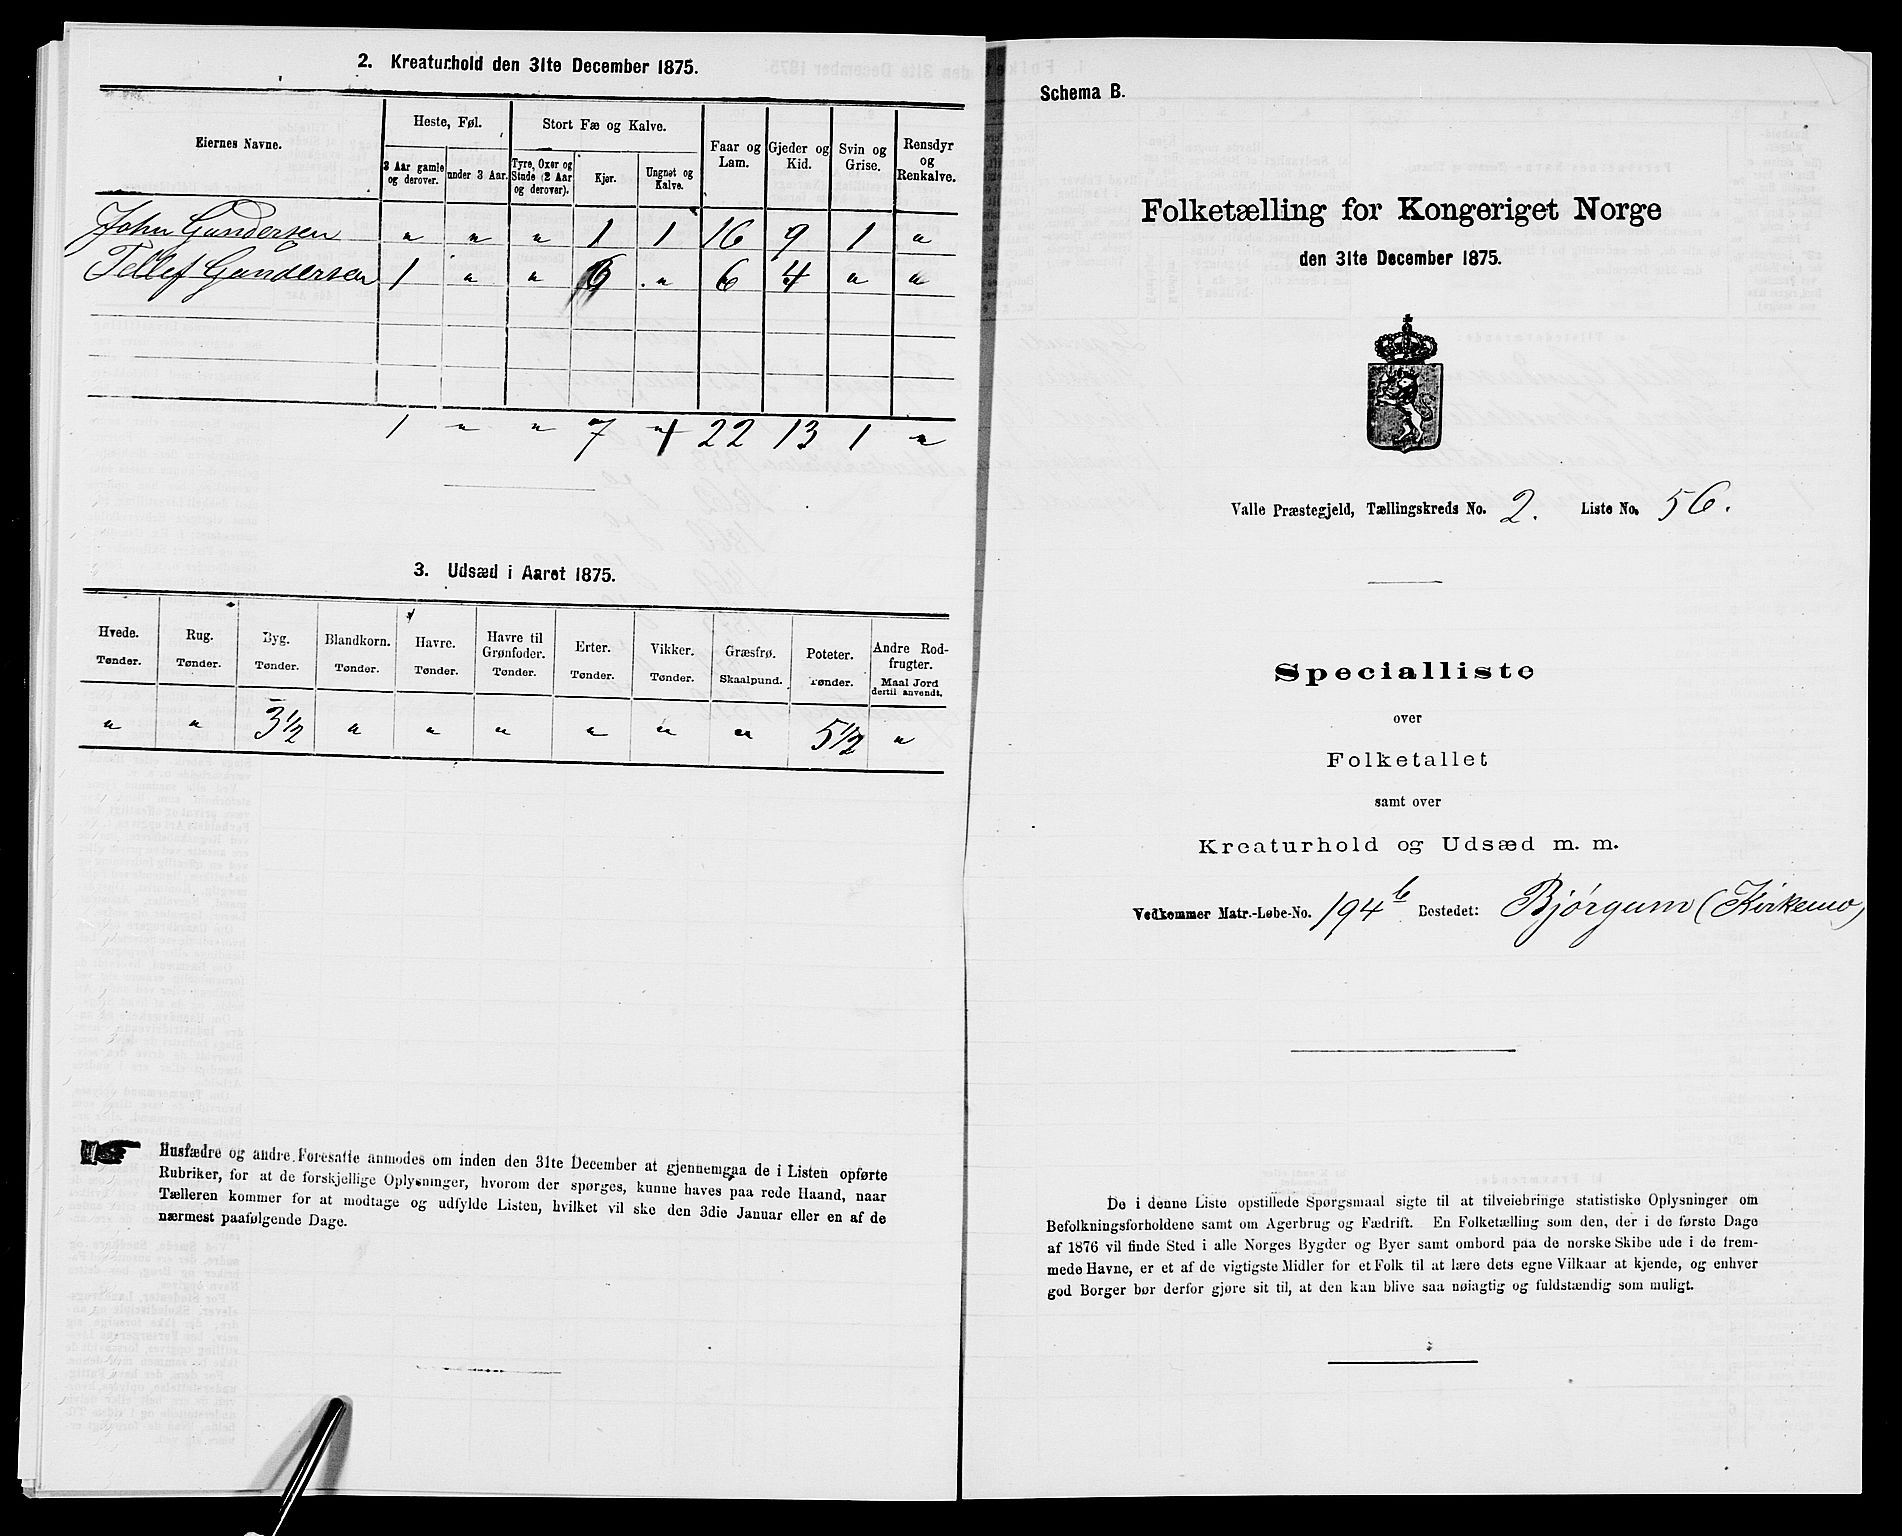 2. Kreaturhold den 31te December 1875.
Eiernes Navne.
Heste, Føl.
Stort Fæ og Kalve.
Faar og Lam.
Gjeder og Kid.
Svin og Grise.
Rensdyr og Renkalve.
3 Aar gamle og derover.
under 3 Aar.
Tyre, Oxer og Stude (2 Aar og derover).
Kjør.
Ungnøt og Kalve.
John Gundersen " " " 1 1 16 9 1 "
Tellef Gundersen 1 " " 6 " 6 4 " "
1 " " 7 1 22 13 1 "
3. Udsæd i Aaret 1875.
Hvede. Rug. Byg. Blandkorn. Havre. Havre til Grønfoder. Erter. Vikker. Græsfrø. Poteter. Andre Rodfrugter.
Tønder. Tønder. Tønder. Tønder. Tønder. Tønder. Tønder. Tønder. Skaalpund. Tønder. Maal Jord dertil anvendt.
" " 3 1/2 " " " " " " 5 1/2 "
Husfædre og andre Foresatte anmodes om inden den 31te December at gjennemgaa de i Listen opførte
Rubriker, for at de forskjellige Oplysninger, hvorom der spørges, kunne haves paa rede Haand, naar
Tælleren kommer for at modtage og udfylde Listen, hvilket vil ske den 3die Januar eller en af de
nærmest paafølgende Dage.
Schema B.
Folketælling for Kongeriget Norge
den 31te December 1875.
Valle Præstegjeld, Tællingskreds No. 2. Liste No. 56.
Specialliste
over
Folketallet
samt over
Kreaturhold og Udsæd m. m.
Vedkommer Matr.-Løbe-No. 194b Bostedet: Bjørgum (Kirkemo)
De i denne Liste opstillede Spørgsmaal sigte til at tilveiebringe statistiske Oplysninger om
Befolkningsforholdene samt om Agerbrug og Fædrift. En Folketælling som den, der i de første Dage
af 1876 vil finde Sted i alle Norges Bygder og Byer samt ombord paa de norske Skibe ude i de frem-
mede Havne, er et af de vigtigste Midler for et Folk til at lære dets egne Vilkaar at kjende, og enhver
god Borger bør derfor gjøre sit til, at den kan blive saa nøiagtig og fuldstændig som muligt.